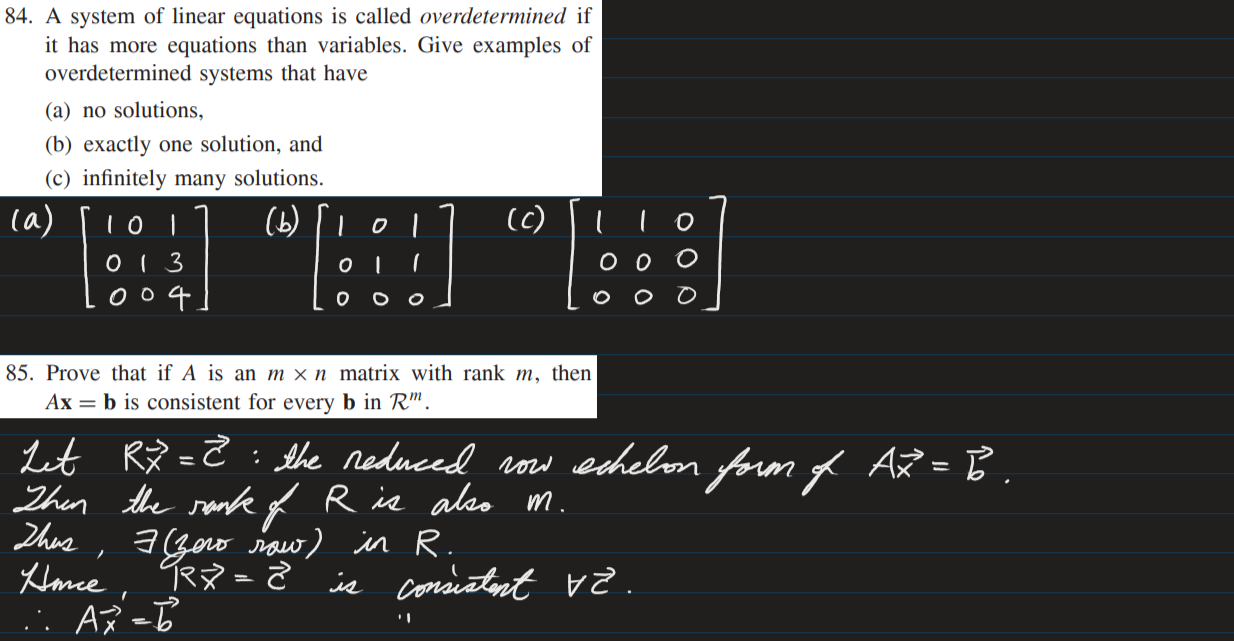 84. A system of linear equations is called overdetermined if
it has more equations than variables. Give examples of
overdetermined systems that have
(a) no solutions,
(b) exactly one solution, and
(c) infinitely many solutions.
(a) [1 0 1 (b) [1 0 1] (c) [1 1 0]
0 1 3 0 1 1 0 0 0
0 0 4] 0 0 0 0 0 0
85. Prove that if A is an m × n matrix with rank m, then
Ax = b is consistent for every b in Rᵐ.
Let Rx⃗ = c⃗ : the reduced row echelon form of Ax⃗ = b⃗.
Then the rank of R is also m.
Thus, ∃(zero row) in R.
Hence, Rx⃗ = c⃗ is consistent ∀c⃗.
∴ Ax⃗ = b⃗ "